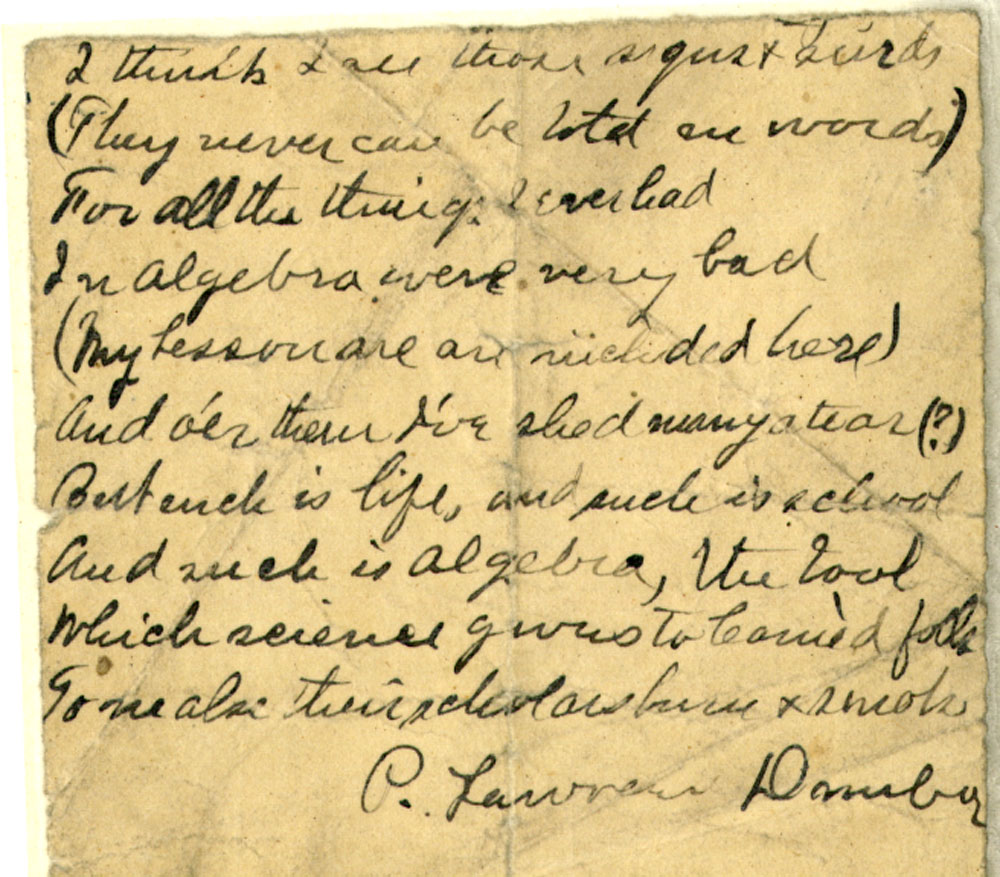 I think I see those signs & surds
(They never can be told in words)
For all the things I ever had
In algebra were very bad
(My lesson are are included here)
And o'er them I've shed many a tear (?)
But such is life, and such is school
And such is algebra, the tool
Which science gives to learnèd folks
To make their scholars burn & smoke
P. Lawrence Dunbar